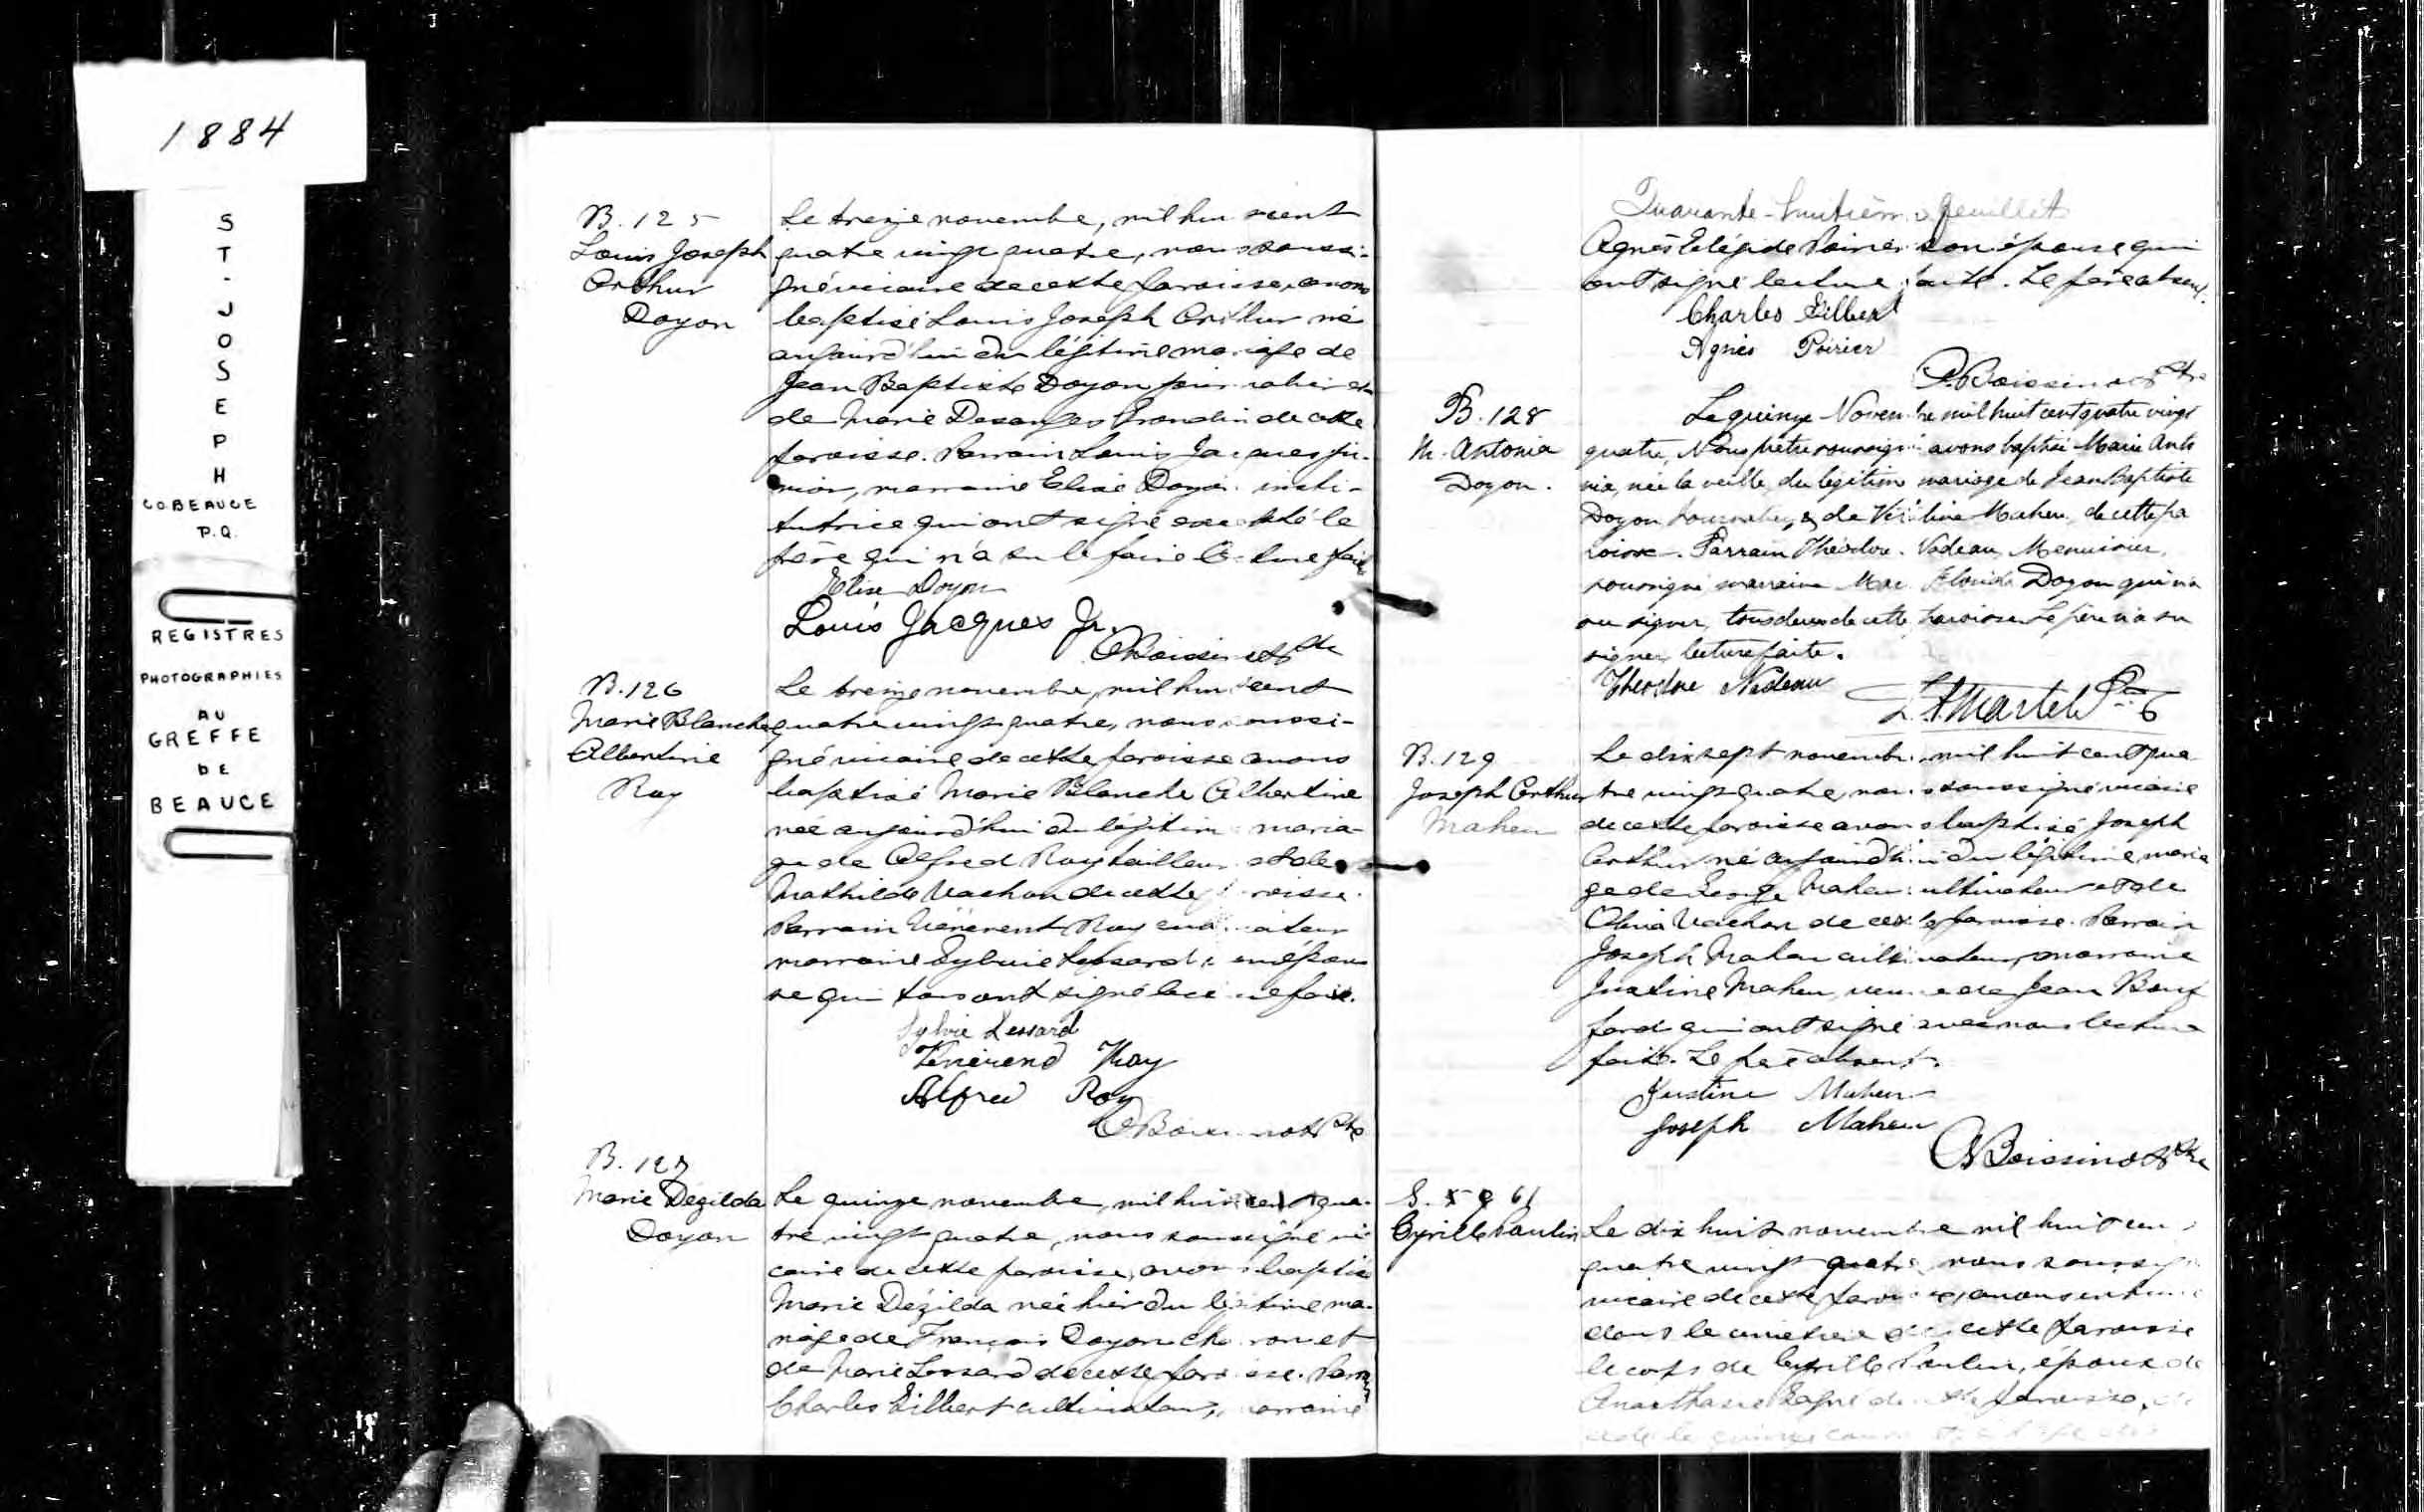 1884
ST-JOSEPH
CO BEAUCE
P.Q.
REGISTRES
PHOTOGRAPHIES
AU
GREFFE
DE
BEAUCE
B. 125
Louis Joseph
Arthur
Doyon
Le treize novembre, mil huit cent
quatre vingt quatre, nous soussi-
gné vicaire de cette paroisse, avons
baptisé Louis Joseph Arthur né
aujourd'hui du légitime mariage de
Jean Baptiste Doyon journalier et
de Marie Desanges Grondin de cette
paroisse. Parrain Louis Jacques ju-
nior, marraine Elise Doyon insti-
tutrice qui ont signé excepté le
père qui n'a su le faire lecture faite
Elise Doyon
Louis Jacques Jr.
Boissinot Ptre
B. 126
Marie Blanche
Albertine
Roy
Le treize novembre, mil huit cent
quatre vingt quatre, nous soussi-
gné vicaire de cette paroisse avons
baptisé Marie Blanche Albertine
née aujourd'hui du légitime maria-
ge de Alfred Roy tailleur et de
Mathilde Vachon de cette paroisse.
Parrain Vénérend Roy cultivateur
marraine Sylvie Lessard son épou
se qui tous ont signé lecture faite.
Sylvie Lessard
Vénérend Roy
Alfred Roy
Boissinot Ptre
B. 127
Marie Dézilda
Doyon
Le quinze novembre, mil huit cent qua-
tre vingt quatre, nous soussigné vi
caire de cette paroisse, avons baptisé
Marie Dézilda née hier du légitime ma-
riage de François Doyon charron et
de Marie Lessard de cette paroisse. Parrain
Charles Gilbert cultivateur, marraine
Quarante-huitième feuillet
Agnès Poirier son épouse qui
ont signé lecture faite. Le père absent.
Charles Gilbert
Agnès Poirier
Boissinot Ptre
B. 128
M. Antonia
Doyon.
Le quinze Novembre mil huit cent quatre vingt
quatre, Nous prêtre soussigné avons baptisé Marie Anto
nia, née la veille, du légitime mariage de Jean Baptiste
Doyon journalier, & de Maheu, de cette pa
roisse. Parrain Théodore Nadeau, Menuisier,
soussigné marraine Doyon qui n'a
su signer, tous deux de cette paroisse Le père n'a su
signer, lecture faite.
Théodore Nadeau
Martel Ptre
B. 129
Joseph Arthur
Maheu
Le dix sept novembre, mil huit cent qua
tre vingt quatre, nous soussigné vicaire
de cette paroisse avons baptisé Joseph
Arthur né aujourd'hui du légitime maria
ge de George Maheu cultivateur et de
Vachon de cette paroisse. Parrain
Joseph Maheu cultivateur, marraine
Justine Maheu, veuve de Jean
qui ont signé avec nous lecture
faite. Le père absent.
Justine Maheu
Joseph Maheu
Boissinot Ptre
S.
61
Cyrille Poulin
Le dix huit novembre mil huit cen
quatre vingt quatre, nous soussig
vicaire de cette paroisse, avons inhu
dans le cimetière de cette paroisse
le corps de Cyrille Poulin, époux de
Anasthasie de cette paroisse,